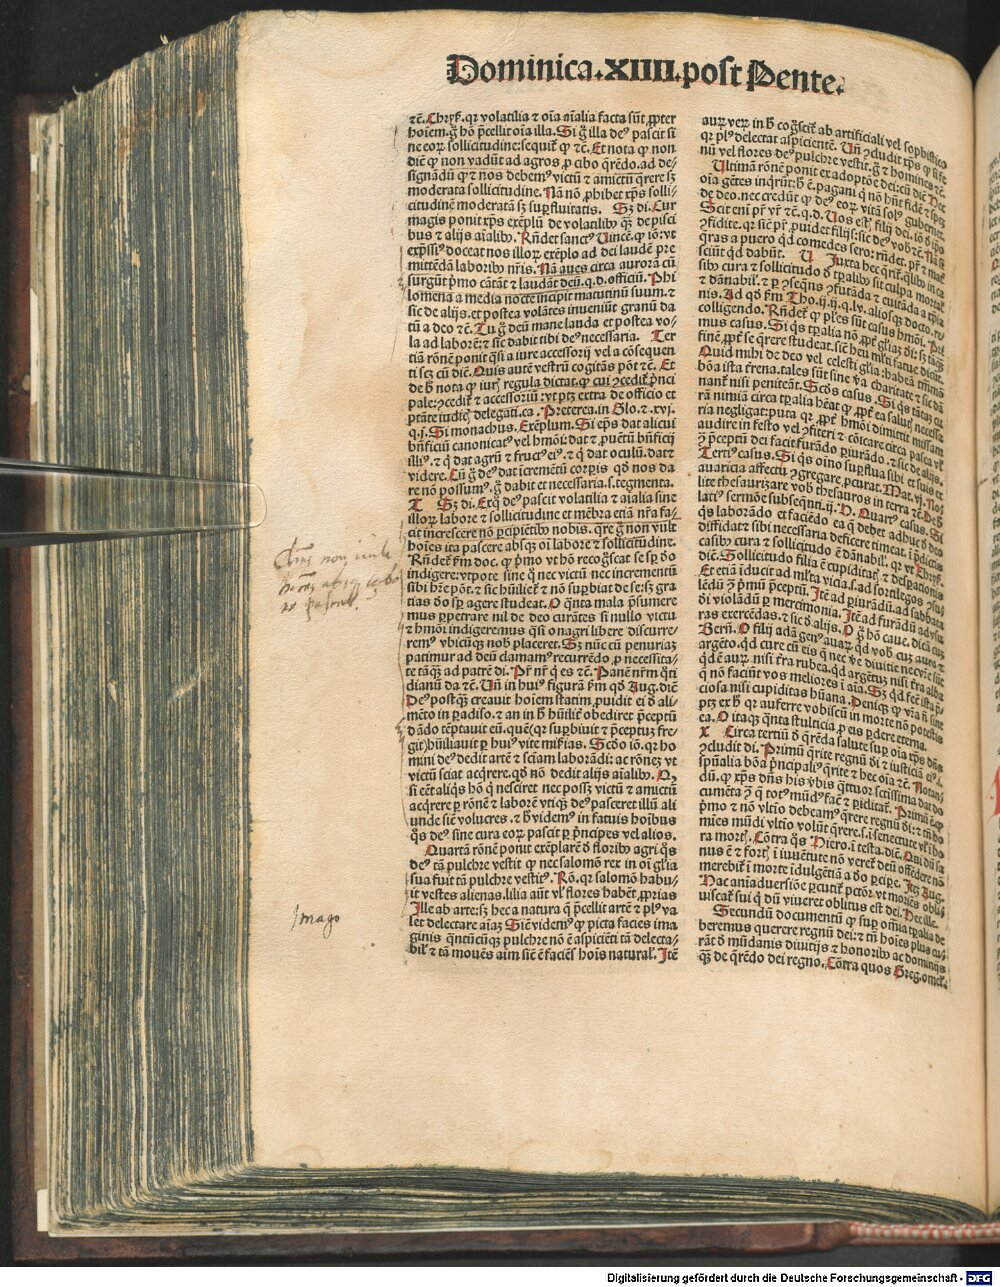 Dominica.XIIII.post Pente.
ꝛc̃. Chryſ. qꝛ volatilia ⁊ oīa aīalia facta ſūt ꝓpter
hoīem. g̊ hō p̄cellit oīa illa. Si g̊ illa deꝰ paſcit ſi
ne eoꝝ ſollicitudine: ſequit᷑ ꝙ ⁊c̃. Et nota ꝙ non
dic̄ ꝙ non vadūt ad agros ꝓ cibo q̄rēdo. ad de⸗
ſignādū ꝙ ⁊ nos debemꝰ victū ⁊ amictū q̄rere ſꝫ
moderata ſollicitudine. Nā nō ꝓhibet xp̄s ſolli⸗
citudinē moderatā ſꝫ ſuꝑfluitatis. Sꝫ di. Cur
magis ponit xp̄s exēplū de volatilibꝰ qꝫ de piſci
bus ⁊ alijs aīalibꝰ. Rn̄det ſanctꝰ Vincē. ꝙ iō: vt
expſſiꝰ doceat nos illoꝝ exēplo ad dei laudē pre
mittēdā laboribꝰ nr̄is. Nā aues circa aurorā cū
ſurgūt p̄mo cātāt ⁊ laudāt deū. q.d. officiū. Phi
lomena a media nocte incipit matutinū ſuum. ⁊
ſic de alijs. et poſtea volātes inueniūt granū da
tū a deo ⁊c̃. Tu g̊ deū mane lauda et poſtea vo⸗
la ad laborē: ⁊ ſic dabit tibi deꝰ neceſſaria. Ter
tiā rōnē ponit q̄ſi a iure acceſſorij vel a cōſequen
ti ſcꝫ cū dic̄. Quis autē veſtrū cogitās pōt ⁊c̃. Et
de h̄ nota ꝙ iurꝭ regula dictat. ꝙ cui ꝯcedit᷑ p̄nci
pale: ꝯcedit᷑ ⁊ acceſſoriū: vt ptꝫ extra de officio et
ptāte iudicꝭ delegati. ca. Preterea. in Glo. ⁊ .xvj.
q.j. Si monachus. Exēplum. Si ep̄s dat alicui
bn̄ficiū canonicatꝰ vel hmōi: dat ⁊ ꝓuētū bn̄ficij
illiꝰ. ⁊ q̇ dat agrū ⁊ fructꝰ eiꝰ. ⁊ q̇ dat oculū. dat ⁊
videre. Cū g̊ deꝰ dat icremētū corpꝑis qd̄ nos da
re nō poſſumꝰ. g̊ dabit et neceſſaria. ſ. tegmenta.
T Sꝫ di. Exq̊ deꝰ paſcit volatilia ⁊ aīalia ſine
illoꝝ labore ⁊ ſollicitudine et mēbra etiā nr̄a fa⸗
cit increſcere nō ꝑcipiētibꝰ nobis. qre g̊ non vult
hoīes ita paſcere abſqꝫ oī labore ⁊ ſollicitudine.
Rn̄det᷑ ẜm doc. ꝙ p̄mo vt hō recog̃ſcat ſe ſꝑ do
indigere: vtpote ſine q̊ nec victū nec incrementū
ſibi hr̄e pōt. ⁊ ſic hūiliet᷑ ⁊ nō ſuꝑbiat de ſe: ſꝫ gra
tias do ſꝑ agere ſtudeat. O q̄nta mala p̄ſumere
mus ꝑpetrare nil de deo curātes ſi nullo victu
⁊ hmōi indigeremus q̄ſi onagri libere diſcurre⸗
remꝰ vbicūqꝫ nob̄ placeret. Sꝫ nūc cū penuriaꝫ
patimur ad deū clamamꝰ recurrēdo ꝓ neceſſita⸗
te tāqꝫ ad patrē di. Pr̄ nr̄ q̇ es ⁊c̃. Panē nr̄m q̊ti
dianū da ⁊c̃. Vn̄ in huiꝰ figurā ẜm qd̄ Aug. dic̄
Deꝰ poſtqꝫ creauit hoīem ſtatim ꝓuidit ei đ ali⸗
mēto in ꝑadiſo. ⁊ an in h̄ hūilit᷑ obediret p̄ceptū
dādo tēptauit eū. que(qꝛ ſuꝑbiuit ⁊ p̄ceptuꝫ fre
git) hūiliauit ꝑ huiꝰ vite miſ̃ias. Scd̄o iō. qꝛ ho
mini deꝰ dedit artē ⁊ ſciam laborādi: ac rōnēꝫ vt
victū ſciat acq̄rere. qd̄ nō dedit alijs aīalibꝰ. Q,
ſi eēt aliqs hō q̇ neſciret nec poſſꝫ victū ⁊ amictū
acq̄rere ꝑ rōnē ⁊ laborē vtiqꝫ deꝰ paſceret illū ali
unde ſic volucres. ⁊ h̄ videmꝰ in fatuis hoībus
q̊s deꝰ ſine cura eoꝝ paſcit ꝑ p̄ncipes vel alios.
Quartā rōnē ponit exēplarē đ floribꝰ agri q̊s
deꝰ tā pulchre veſtit ꝙ nec ſalomō rex in oī gl̄ia
ſua fuit tā pulchre veſtitꝰ. Rō. qꝛ ſalomō habu⸗
it veſtes alienas. lilia aūt vl̓ flores habēt ꝓprias
Ille ab arte: ſꝫ hec a natura q̄ p̄cellit artē ⁊ plꝰ va
let delectare aīaꝫ Sic videmꝰ ꝙ picta facies ima
ginis q̄ntūcūqꝫ pulchre nō ē aſpiciēti tā delecta⸗
bil̓ ⁊ tā mouēs aīm ſic ē facies hoīs natural̓. Itē
Imago
aurꝫ verꝫ in h̄ cog̃ſcit᷑ ab artificiali vel ſophiſtico
qꝛ plꝰ delectat aſpicientē. Vn̄ ꝯcludit xp̄s ꝙ ſi fe
nū vel flores deꝰ pulchre veſtit. g̊ ⁊ homines ⁊c̃.
Ultimā rōnē ponit ex adoptōe dei: cū dic̄ Hec
oīa gētes inqrūt: h̄ ē. pagani q̇ nō hn̄t fidē ⁊ ſpeꝫ
de deo. nec credūt ꝙ deꝰ eoꝝ vitā ſolꝰ gubernet.
Scit eni pr̄ vr̄ ⁊c̃. q.d. Vos eſtꝭ filij dei. iō đ ip̄o
ꝯfidite. qꝛ ſic pr̄ ꝓuidet filijs: ſic deꝰ vob̄ ⁊c̃. Nā ſi
q̄ras a puero qd comedes ſero: rn̄det. pr̄ ⁊ mat̄
ſciūt qd dabūt. V Juxta hec q̄rit᷑. qlibꝰ in ca
ſibꝰ cura ⁊ ſollicitudo đ tꝑalibꝰ ſit culpa mortal̓
⁊ dānabil̓. ⁊ ꝑ ꝯſeq̄ns ꝯfutāda ⁊ euitāda a xp̄ia
nis. Ad qd̄ ẜm Tho. ij.ij. q.lv. alioſqꝫ docto. re⸗
colligendo. Rn̄det᷑ ꝙ pl̄es ſūt caſus hmōi. Pri
mus caſus. Si qs tꝑalia nō ꝓpt̄ gl̄iaꝫ di: ſꝫ tāqꝫ
finē. ꝓpt̄ ſe q̄rere ſtudeat. ſic heu ml̓ti fatue dicūt.
Quid mihi de deo vel celeſti gl̄ia: habeā tn̄mō
bōa iſta t̄rena. tales ſūt ſine v̄a charitate ⁊ ſic dā
nant᷑ niſi peniteāt. Scd̄s caſus. Si qs tātaꝫ cu
rā nimiā circa tꝑalia heāt ꝙ ꝓpt̄ ea ſalutꝭ neceſſa
ria negligat: puta qꝛ ꝓpt̄ hmōi dimittit miſſam
audire in feſto vel ꝯfiteri ⁊ cōicare circa paſca vl̓
ꝯ p̄ceptū dei facit furādo ꝑiurādo. ⁊ ſic de alijs.
Tertiꝰ caſus. Si qs oīno ſuꝑflua ſibi et ſuis ex
auaricia affectu ꝯgregare ꝓcurat. Mat. vj. No⸗
lite theſaurizare vob̄ theſauros in terra ⁊c̃. De h̄
latiꝰ ſermōe ſubſequēti. ij. D. Quartꝰ caſus. Si
qs laborādo et faciēdo ea q̄ debet adhuc đ deo
diffidat ſibi neceſſaria deficere timeat. i p̄dictis
caſibꝰ cura ⁊ ſollicitudo ē dānabil̓. qꝛ vt Chryſ.
dic̄. Sollicitudo filia ē cupiditatꝭ ⁊ deſꝑationis
Et etiā iducit ad ml̓ta vicia. ſ. ad ſortilegos ꝯſu⸗
lēdū ꝯ p̄mū p̄ceptū. Itē ad ꝑiurādū. ad ſabbata
di violādū ꝑ mercimonia. Itē ad furādū adulte
ras exercēdas. ⁊ ſic đ alijs. O g̊ hō caue. dicā cuꝫ
Bern̄. O filij adā genꝰ auarꝫ qd vob̄ cuꝫ auro ⁊
argēto. qd cure cū eis q̄ nec v̄e diuitie nec vr̄e ſūt
qd ē aurꝫ niſi t̄ra rubea. qd argētuꝫ niſi t̄ra alba
q̄ nō faciūt vos meliores i aīa. Sꝫ qd fec̄ iſta p̄⸗
cioſa niſi cupiditas hūana. Deniqꝫ ꝙ v̄ea nō ſint
ptꝫ ex h̄ qꝛ auferre vobiſcū in morte nō poteſtis
ea. O itaqꝫ q̄nta ſtulticia ꝓ eis ꝑdere eterna.
X Circa tertiū đ q̄rēda ſalute ſuꝑ oīa xp̄s dn̄s
ꝯcludit di. Primū q̄rite regnū di ⁊ iuſticiā eiꝰ. i.
ſpūalia bōa p̄ncipaliꝰ q̄rite ⁊ hec oīa ⁊c̃. Notan⸗
dū. ꝙ xp̄s dn̄s his v̄bis q̊ttuor ſctiſſima dat do
cumēta ꝯ q̄ totꝰ mūdꝰ fac̄ ⁊ ꝑiditat᷑. Primū ē qꝫ
p̄mo ⁊ nō vltīo debeamꝰ q̄rere regnū di: ⁊ tn̄ ho
mīes mūdi vltīo volūt q̄rere. ſ. i ſenectute vl̓ i ho
ra mortꝭ. Cōtra q̊s Piero. i teſta. dic̄. Qui dū ſa
nus ē ⁊ fortꝭ i iuuētute nō veret᷑ deū offēdere nō
merebit᷑ i morte īdulgētiā a do ꝑcipe. Itꝫ Aug.
Hac aīaduerſiōe ꝑcutit᷑ pctōr vt moriēs obli⸗
uiſcat᷑ ſui q̇ dū viueret oblitus eſt dei. Hec ille.
Secundū documentū ꝙ ſuꝑ omīa tꝑalia de
beremus querere regnū dei: ⁊ tn̄ hoīes plus cu⸗
rāt đ mūdanis diuitijs ⁊ honoribꝰ ac dominijs
qꝫ de q̄rēdo dei regno. Cōtra quos Greg. omel̓.
Digitalisierung gefördert durch die Deutsche Forschungsgemeinschaft - DFG